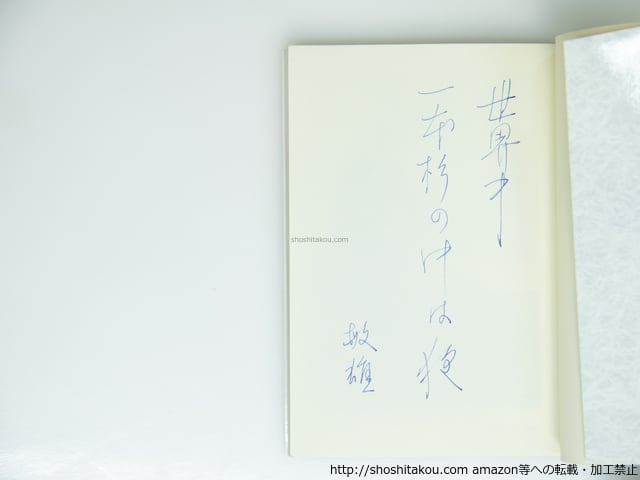 世界中
一本杉の中は夜
敏雄
shoshitakou.com
http://shoshitakou.com amazon等への転載・加工禁止